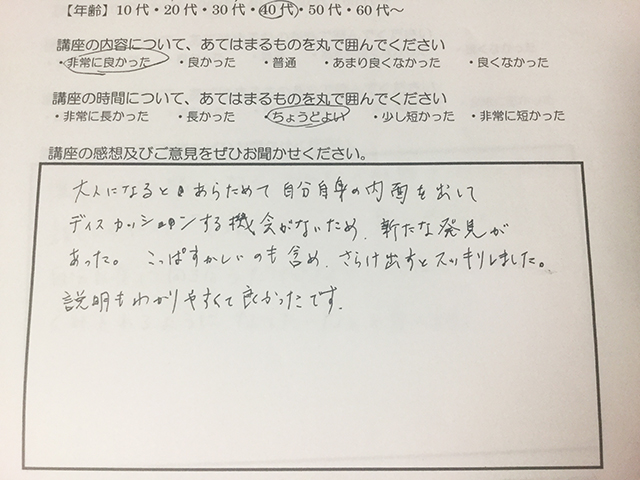 【年齢】10代・20代・30代・40代・50代・60代～
講座の内容について、あてはまるものを丸で囲んでください
・非常に良かった ・良かった ・普通 ・あまり良くなかった ・良くなかった
講座の時間について、あてはまるものを丸で囲んでください
・非常に長かった ・長かった ・ちょうどよい ・少し短かった ・非常に短かった
講座の感想及びご意見をぜひお聞かせください。
大人になると あらためて 自分自身の内面を出して
ディスカッションする機会がないため、新たな発見が
あった。 こっぱずかしいのも含め、さらけ出すとスッキリしました。
説明もわかりやすくて良かったです。